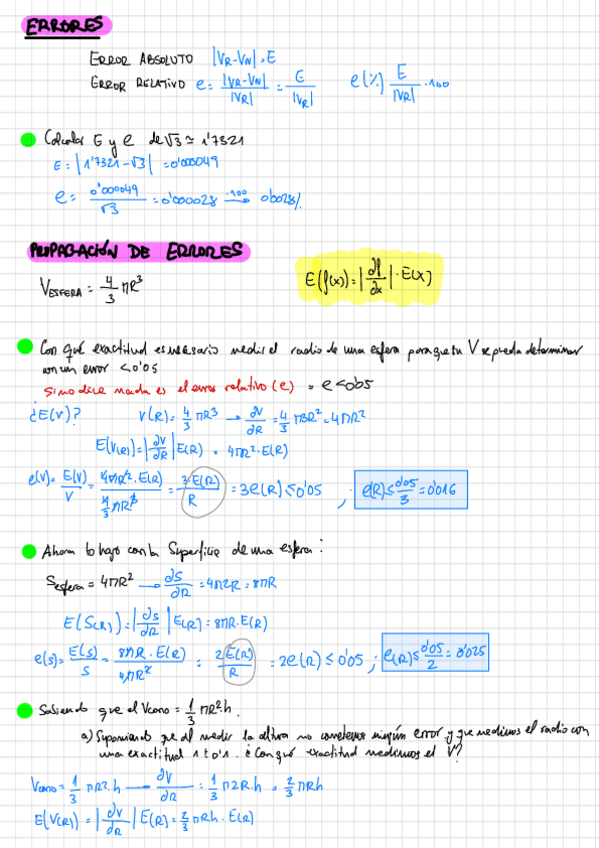 ERRORES
ERROR ABSOLUTO |VR-VN| = E
ERROR RELATIVO e = |VR-VN| / |VR| = E / |VR|   e(%) E / |VR| · 100
Calcular E y e de √3 ≃ 1'7321
E = |1'7321 - √3| = 0'000049
e = 0'000049 / √3 = 0'000028 ·100→ 0'0028%
PROPAGACIÓN DE ERRORES
VESFERA = 4/3 πR³   E(f(x)) = |∂f/∂x| · E(x)
Con qué exactitud es necesario medir el radio de una esfera para que su V se pueda determinar
con un error < 0'05
Si no dice nada es el error relativo (e) = e < 0'05
¿E(V)?   V(R) = 4/3 πR³ → ∂V/∂R = 4/3 π3R² = 4πR²
E(V(R)) = |∂V/∂R| E(R) = 4πR² · E(R)
e(V) = E(V)/V = 4πR² · E(R) / 4/3 πR³ = 3 E(R)/R = 3e(R) ≤ 0'05 ; e(R) ≤ 0'05/3 = 0'016
Ahora lo hago con la Superficie de una esfera:
Sesfera = 4πR² → ∂S/∂R = 4π2R = 8πR
E(S(R)) = |∂S/∂R| E(R) = 8πR · E(R)
e(S) = E(S)/S = 8πR · E(R) / 4πR² = 2 E(R)/R = 2e(R) ≤ 0'05 ; e(R) ≤ 0'05/2 = 0'025
Sabiendo que el Vcono = 1/3 πR²h.
a) Suponiendo que al medir la altura no cometemos ningún error y que medimos el radio con
una exactitud 1 ± 0'1. ¿Con qué exactitud medimos el V?
Vcono = 1/3 πR² · h → ∂V/∂R = 1/3 π2R·h = 2/3 πRh
E(V(R)) = |∂V/∂R| E(R) = 2/3 πRh · E(R)